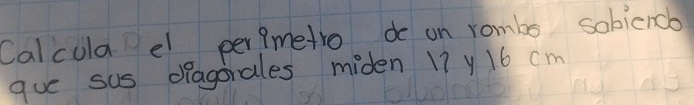 Calcula el perimetro de un rombo sabiendo
que sus diagonales miden 12 y 16 cm